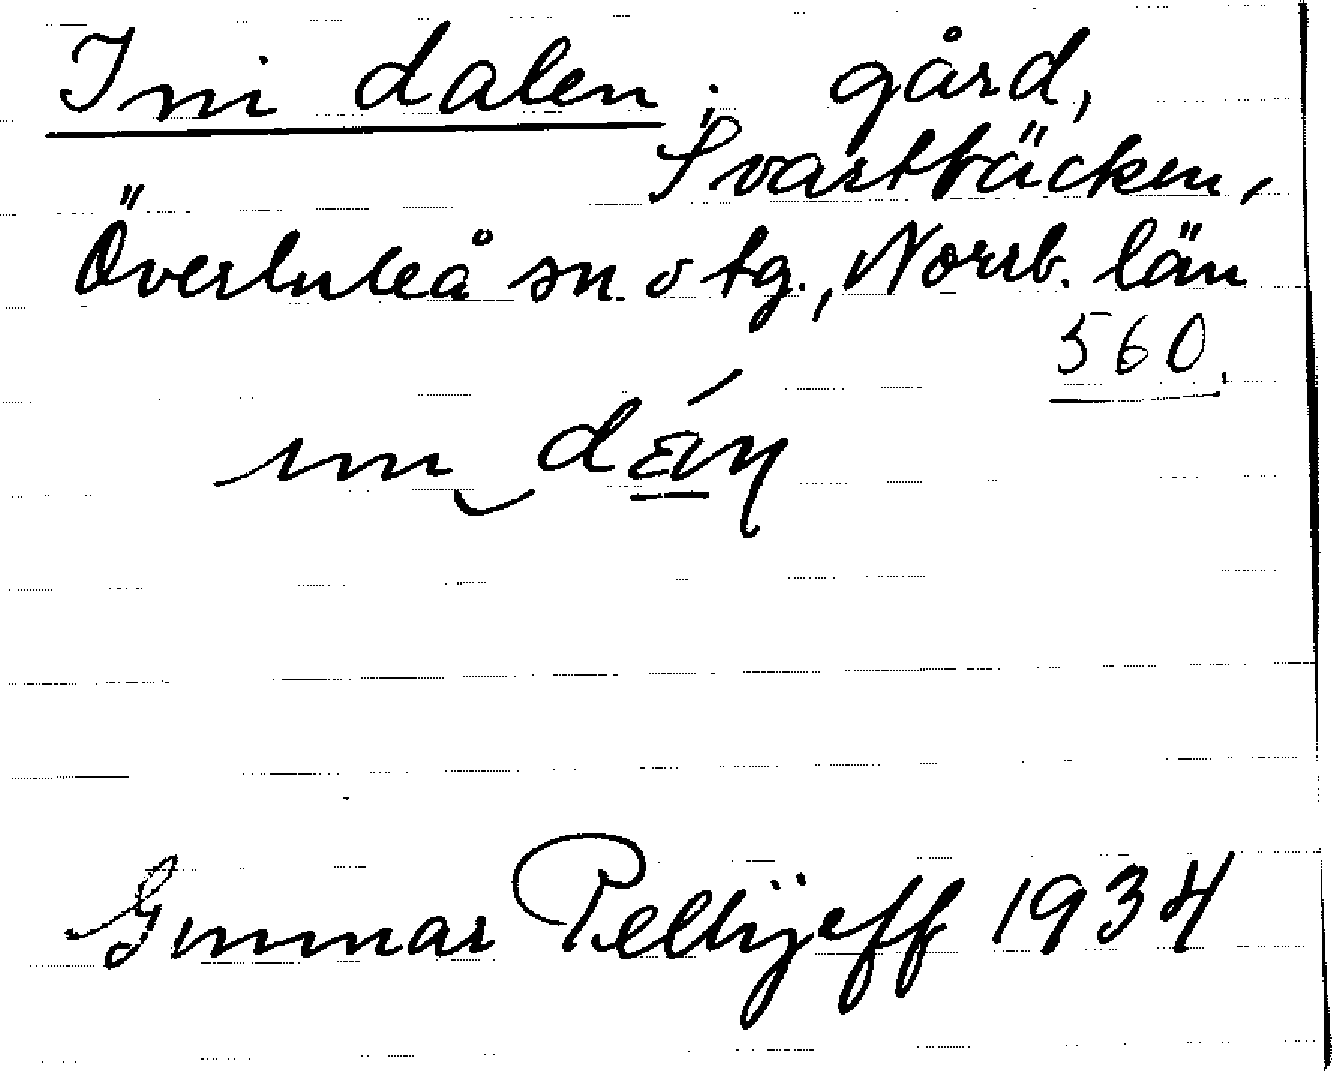 Ini dalen; gård,
Svartbäcken,
Överluleå sn o tg., Norrb. län
560.
Gunnar Pellijeff 1934